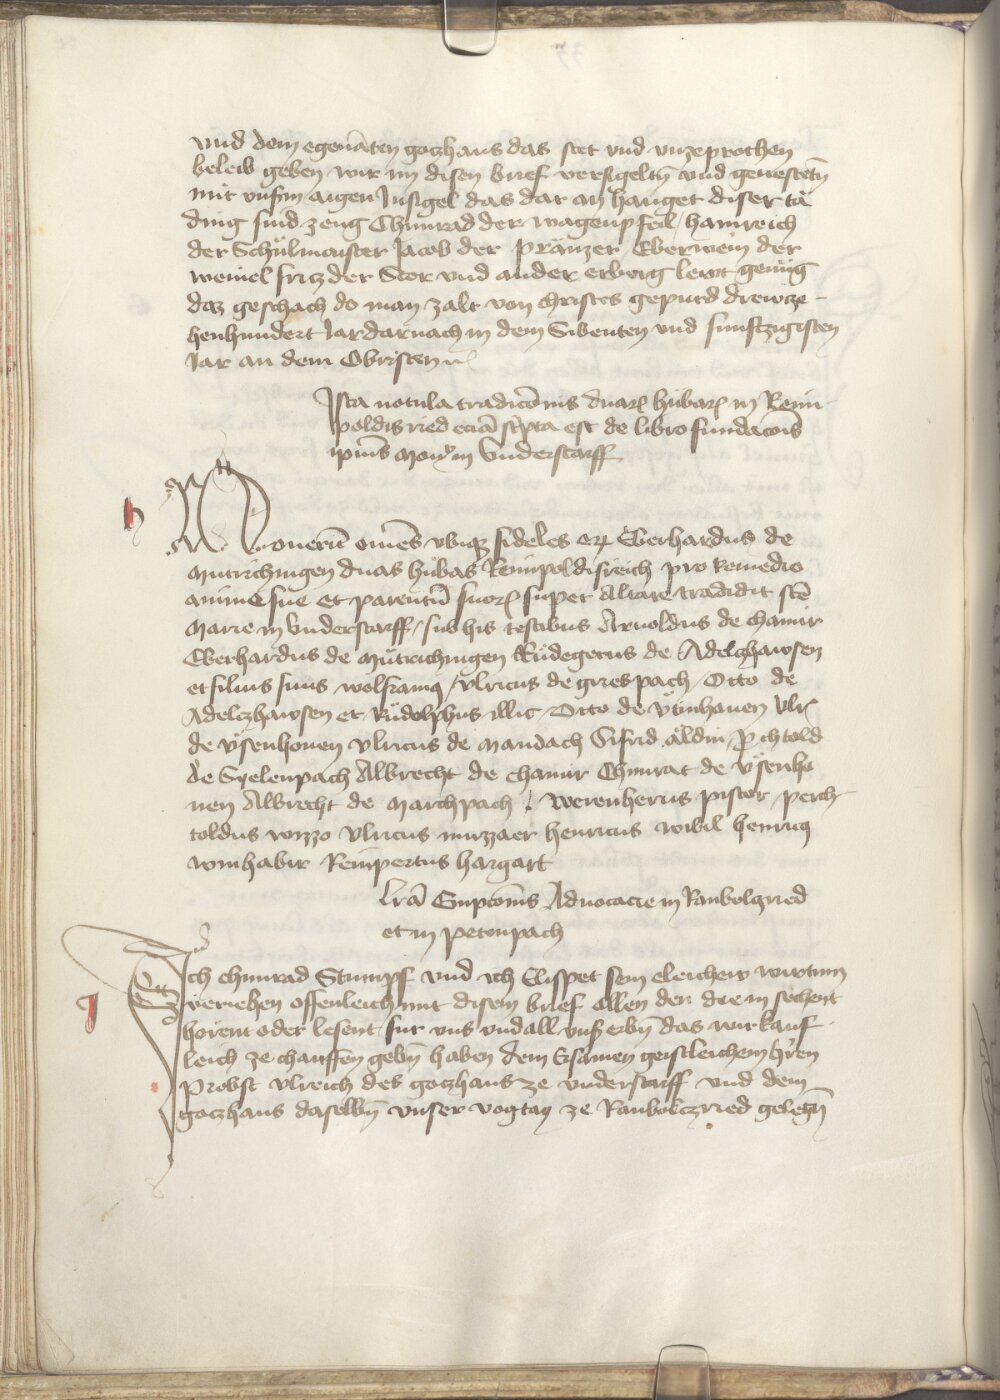 vnd dem egenāten goczhaus das stet vnd vnzeprochen
beleib geben wir im disen brief versigeltn̄ vnd geuestetn̄
mit vnsm̄ aigen Insigel das dar an hanget diser tä
ding sind zeug Chunrad der wagenpfeil / hainreich
der Schulmaister Jacob der pränzer Eberwein der
weinel fricz der Stor vnd ander erberg lewt genūg
daz geschach do man zalt von christes gepurd drewze-
henhundert Jar darnach in dem Sibenten vnd funftzigisten
Jar an dem Obristen
Ista notula tradicōnis duarꝝ hūbarꝝ in Reim-
poldisried eciā scīpta est de libro fundacōis
ipius Moñ in Vnderstarff
h
Nouerīt om̄es vbiqꝫ fideles Eberhardus de
Mutrichingen duas hůbas Reimpoldisreich pro Remedio
anime sue et parentū suorꝝ super Altare tradidit scē
Marie in Vnderstarff / sub his testibus Arnoldus de chamir
Eberhardus de Můtrichingen Růdegerus de Adelczhawsen
et filius suus wolframꝯ / vlricus de griespach / Otto de
Adelczhawsen et Růdolphus illic / Otto de vtinhouen Vlrꝰ
de vsenhouen vlricus de Mandach Sifrid äldin / ꝑchtold
de Syelenpach Albrecht de chamir Chunrat de vsenho
uen Albrecht de Marchpach / werenherus pistor / perch-
toldus wizzo vlricus mizzaer henricus wibil henricꝯ
winhabir Reimpertus hargart
Lrā Empcōnis Aduocacie in Ranbolczried
et in petenpach
q
Ich chunrad Stumpf vnd ich Elispet sein eleichew wirtinn
veriehen offenleich mit disem brief Allen den die in sehent
hörent oder lesent fur vns vnd all vnsr̄ erbn̄ das wir kauf-
leich ze chauffen gebn̄ haben dem Ersamen geistleichem h̄ren
Probst vlreich des goczhaus ze vnderstarff vnd dem
goczhaus daselbn̄ vnser vogtay ze Ranbolczried gelegn̄